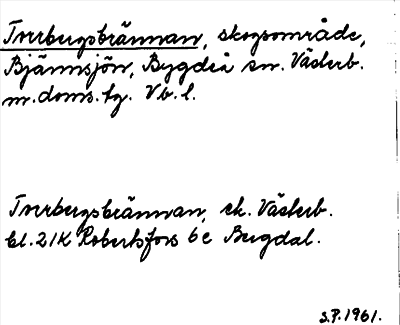 Turbergsbrännan, skogsområde,
Bjännsjön, Bygdeå sn. Västerb.
m. doms. fg. Vb. l.
Turbergsbrännan, ek. Västerb.
bl. 21K Robertsfors 6c Bergdal.
S.P. 1961.